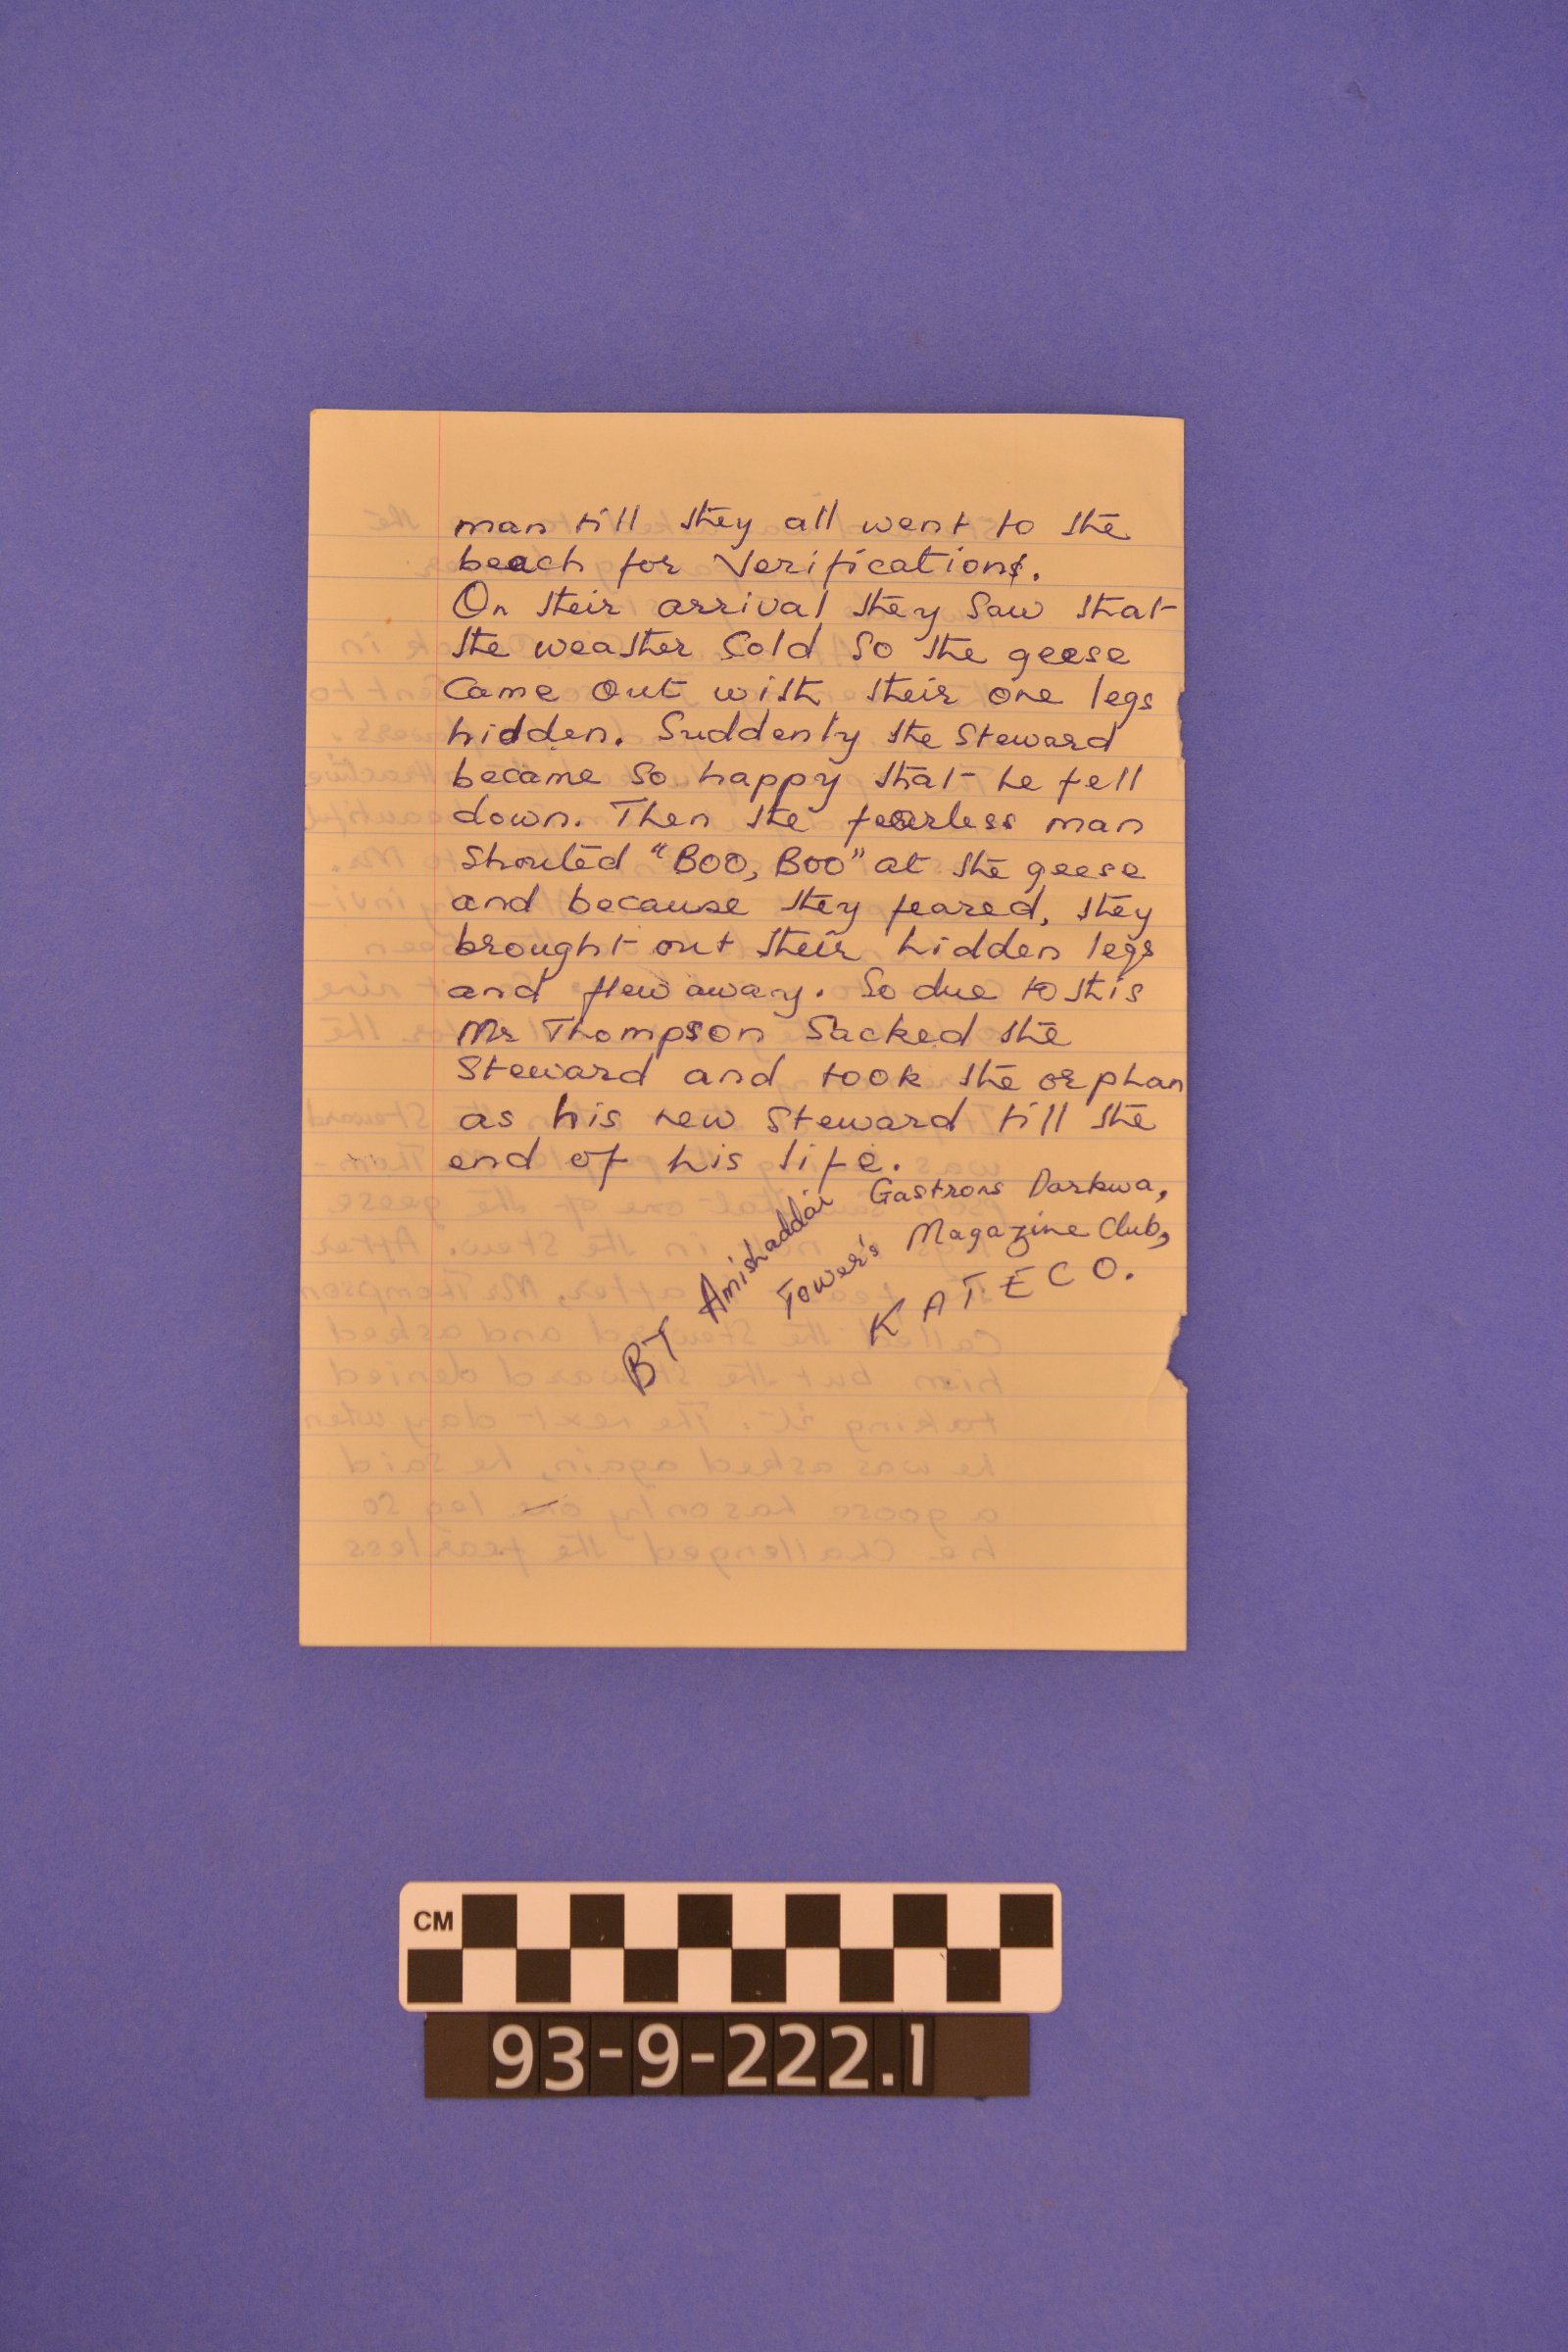 man till they all went to the
beach for Verifications.
On their arrival they saw that
the weather Cold So the geese
Came Out with their one legs
hidden. Suddenly the Steward
became so happy that he fell
down. Then the fearless man
Shouted "BOO, BOO" at the geese
and because they feared, they
brought out their hidden legs
and flew away. So due to this
Mr Thompson Sacked the
Steward and took the orphan
as his new Steward till the
end of his life.
BY Amishaddai Gastrons Darkwa,
Tower's Magazine Club,
KATECO.
CM
93-9-222.1